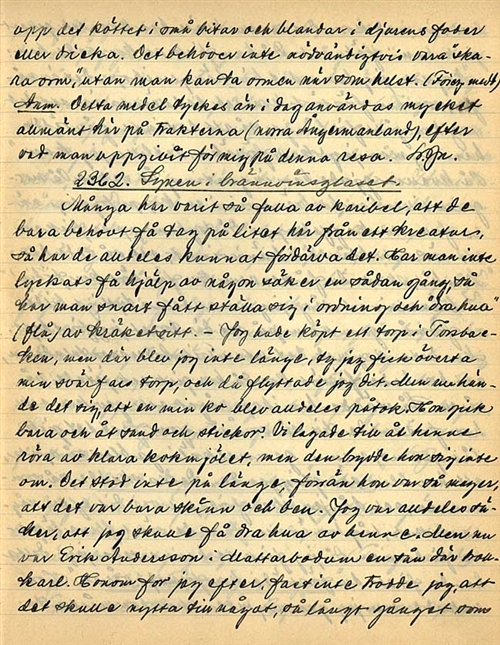 upp det köttet i små bitar och blandar i djurens foder
eller dricka. Det behöver inte nödvändigtvis vara "ska-
ra orm", utan man kan ta ormen när som helst. (Föreg medd)
Anm. Detta medel tyckes än i dag användas mycket
allmänt här på trakterna (norra Ångermanland), efter
vad man uppgivit för mig på denna resa.
2362. Synen i brännvinsglaset.
Många har varit så fulla av karibel, att de
bara behövt få tag på litet hår från ett kreatur,
så har de alldeles kunnat fördärva det. Har man inte
lyckats få hjälp av någon säker en sådan gång, så
har man snart fått ställa sig i ordning och "dra hua"
(flå) av kräket sitt. – Jag hade köpt ett torp i Torsbac-
ken, men där blev jag inte länge, ty jag fick överta
min svärfars torp, och då flyttade jag dit. Men nu hän-
de det sig, att en min ko blev alldeles på tok. Hon gick
bara och åt sand och stickor. Vi lagade till åt henne
röra av klara kornmjölet, men den brydde hon sig inte
om. Det stod inte på länge, förrän hon var så mager,
att det var bara skinn och ben. Jag var alldeles sä-
ker, att jag skulle få dra hua av henne. Men nu
var Erik Andersson i Mattarbodum en sån där troll-
karl. Honom for jag efter, fast inte trodde jag, att
det skulle nytta till något, så långt gånget som